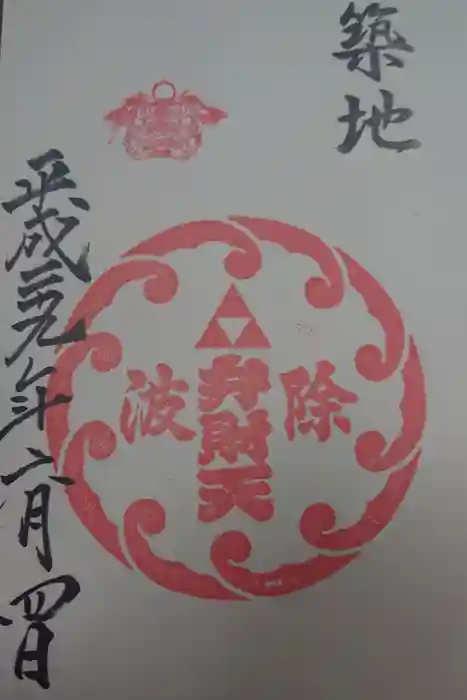 築地
波除
弁財天
平成二九年六月四日